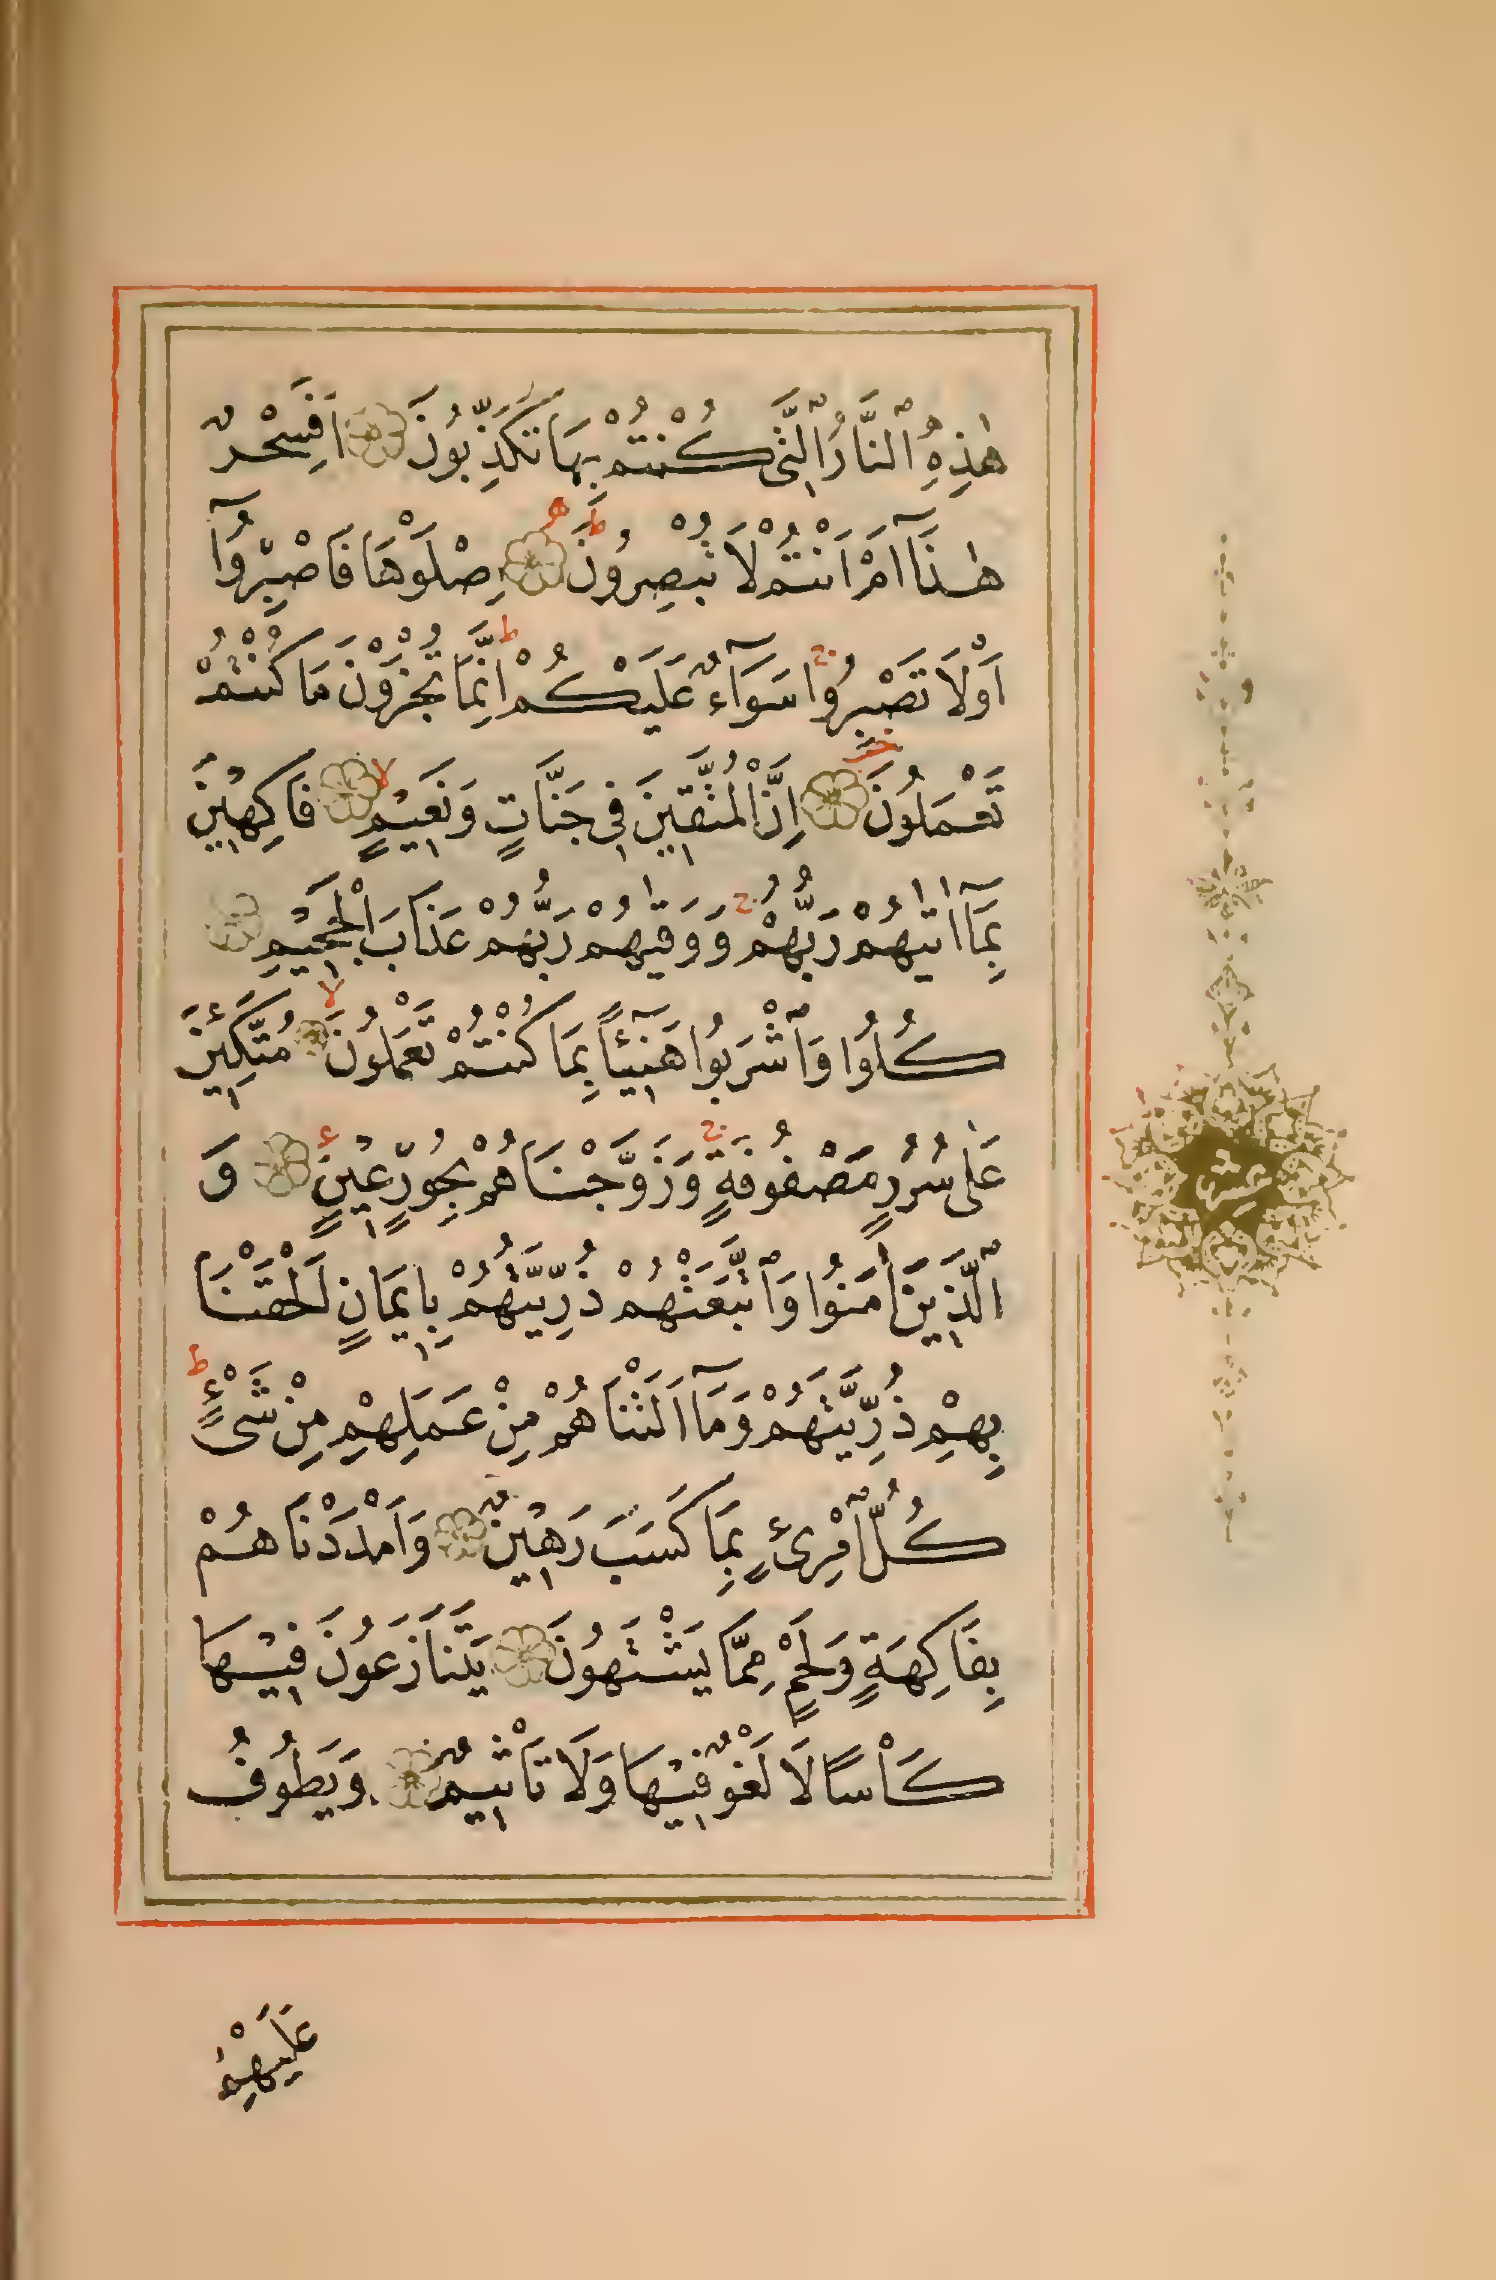 هٰذِهِ ٱلنَّارُ ٱلَّتٖى كُنْتُمْ بِهَا تُكَذِّبُونَ اَفَسِحْرٌ
هٰذَآ اَمْ اَنْتُمْ لَا تُبْصِرُونَ اِصْلَوْهَا فَاصْبِرُوٓا
اَوْلَا تَصْبِرُوا سَوَآءٌ عَلَيْكُمْ اِنَّمَا تُجْزَوْنَ مَا كُنْتُمْ
تَعْمَلُونَ اِنَّ ٱلْمُتَّقٖينَ فٖى جَنَّاتٍ وَنَعٖيمٍ فَاكِهٖينَ
بِمَآ اٰتٰيهُمْ رَبُّهُمْ وَوَقٰيهُمْ رَبُّهُمْ عَذَابَ ٱلْجَحٖيمِ
كُلُوا وَٱشْرَبُوا هَنٖٓيئًا بِمَا كُنْتُمْ تَعْمَلُونَ مُتَّكِـٖٔينَ
عَلٰى سُرُرٍ مَصْفُوفَةٍ وَزَوَّجْنَاهُمْ بِحُورٍ عٖينٍ وَ
ٱلَّذٖينَ اٰمَنُوا وَٱتَّبَعَتْهُمْ ذُرِّيَّتُهُمْ بِاٖيمَانٍ اَلْحَقْنَا
بِهِمْ ذُرِّيَّتَهُمْ وَمَآ اَلَتْنَاهُمْ مِنْ عَمَلِهِمْ مِنْ شَىْءٍ
كُلُّ ٱمْرِئٍ بِمَا كَسَبَ رَهٖينٌ وَاَمْدَدْنَاهُمْ
بِفَاكِهَةٍ وَلَحْمٍ مِمَّا يَشْتَهُونَ يَتَنَازَعُونَ فٖيهَا
كَأْسًا لَا لَغْوٌ فٖيهَا وَلَا تَأْثٖيمٌ وَيَطُوفُ
عَلَيْهِمْ